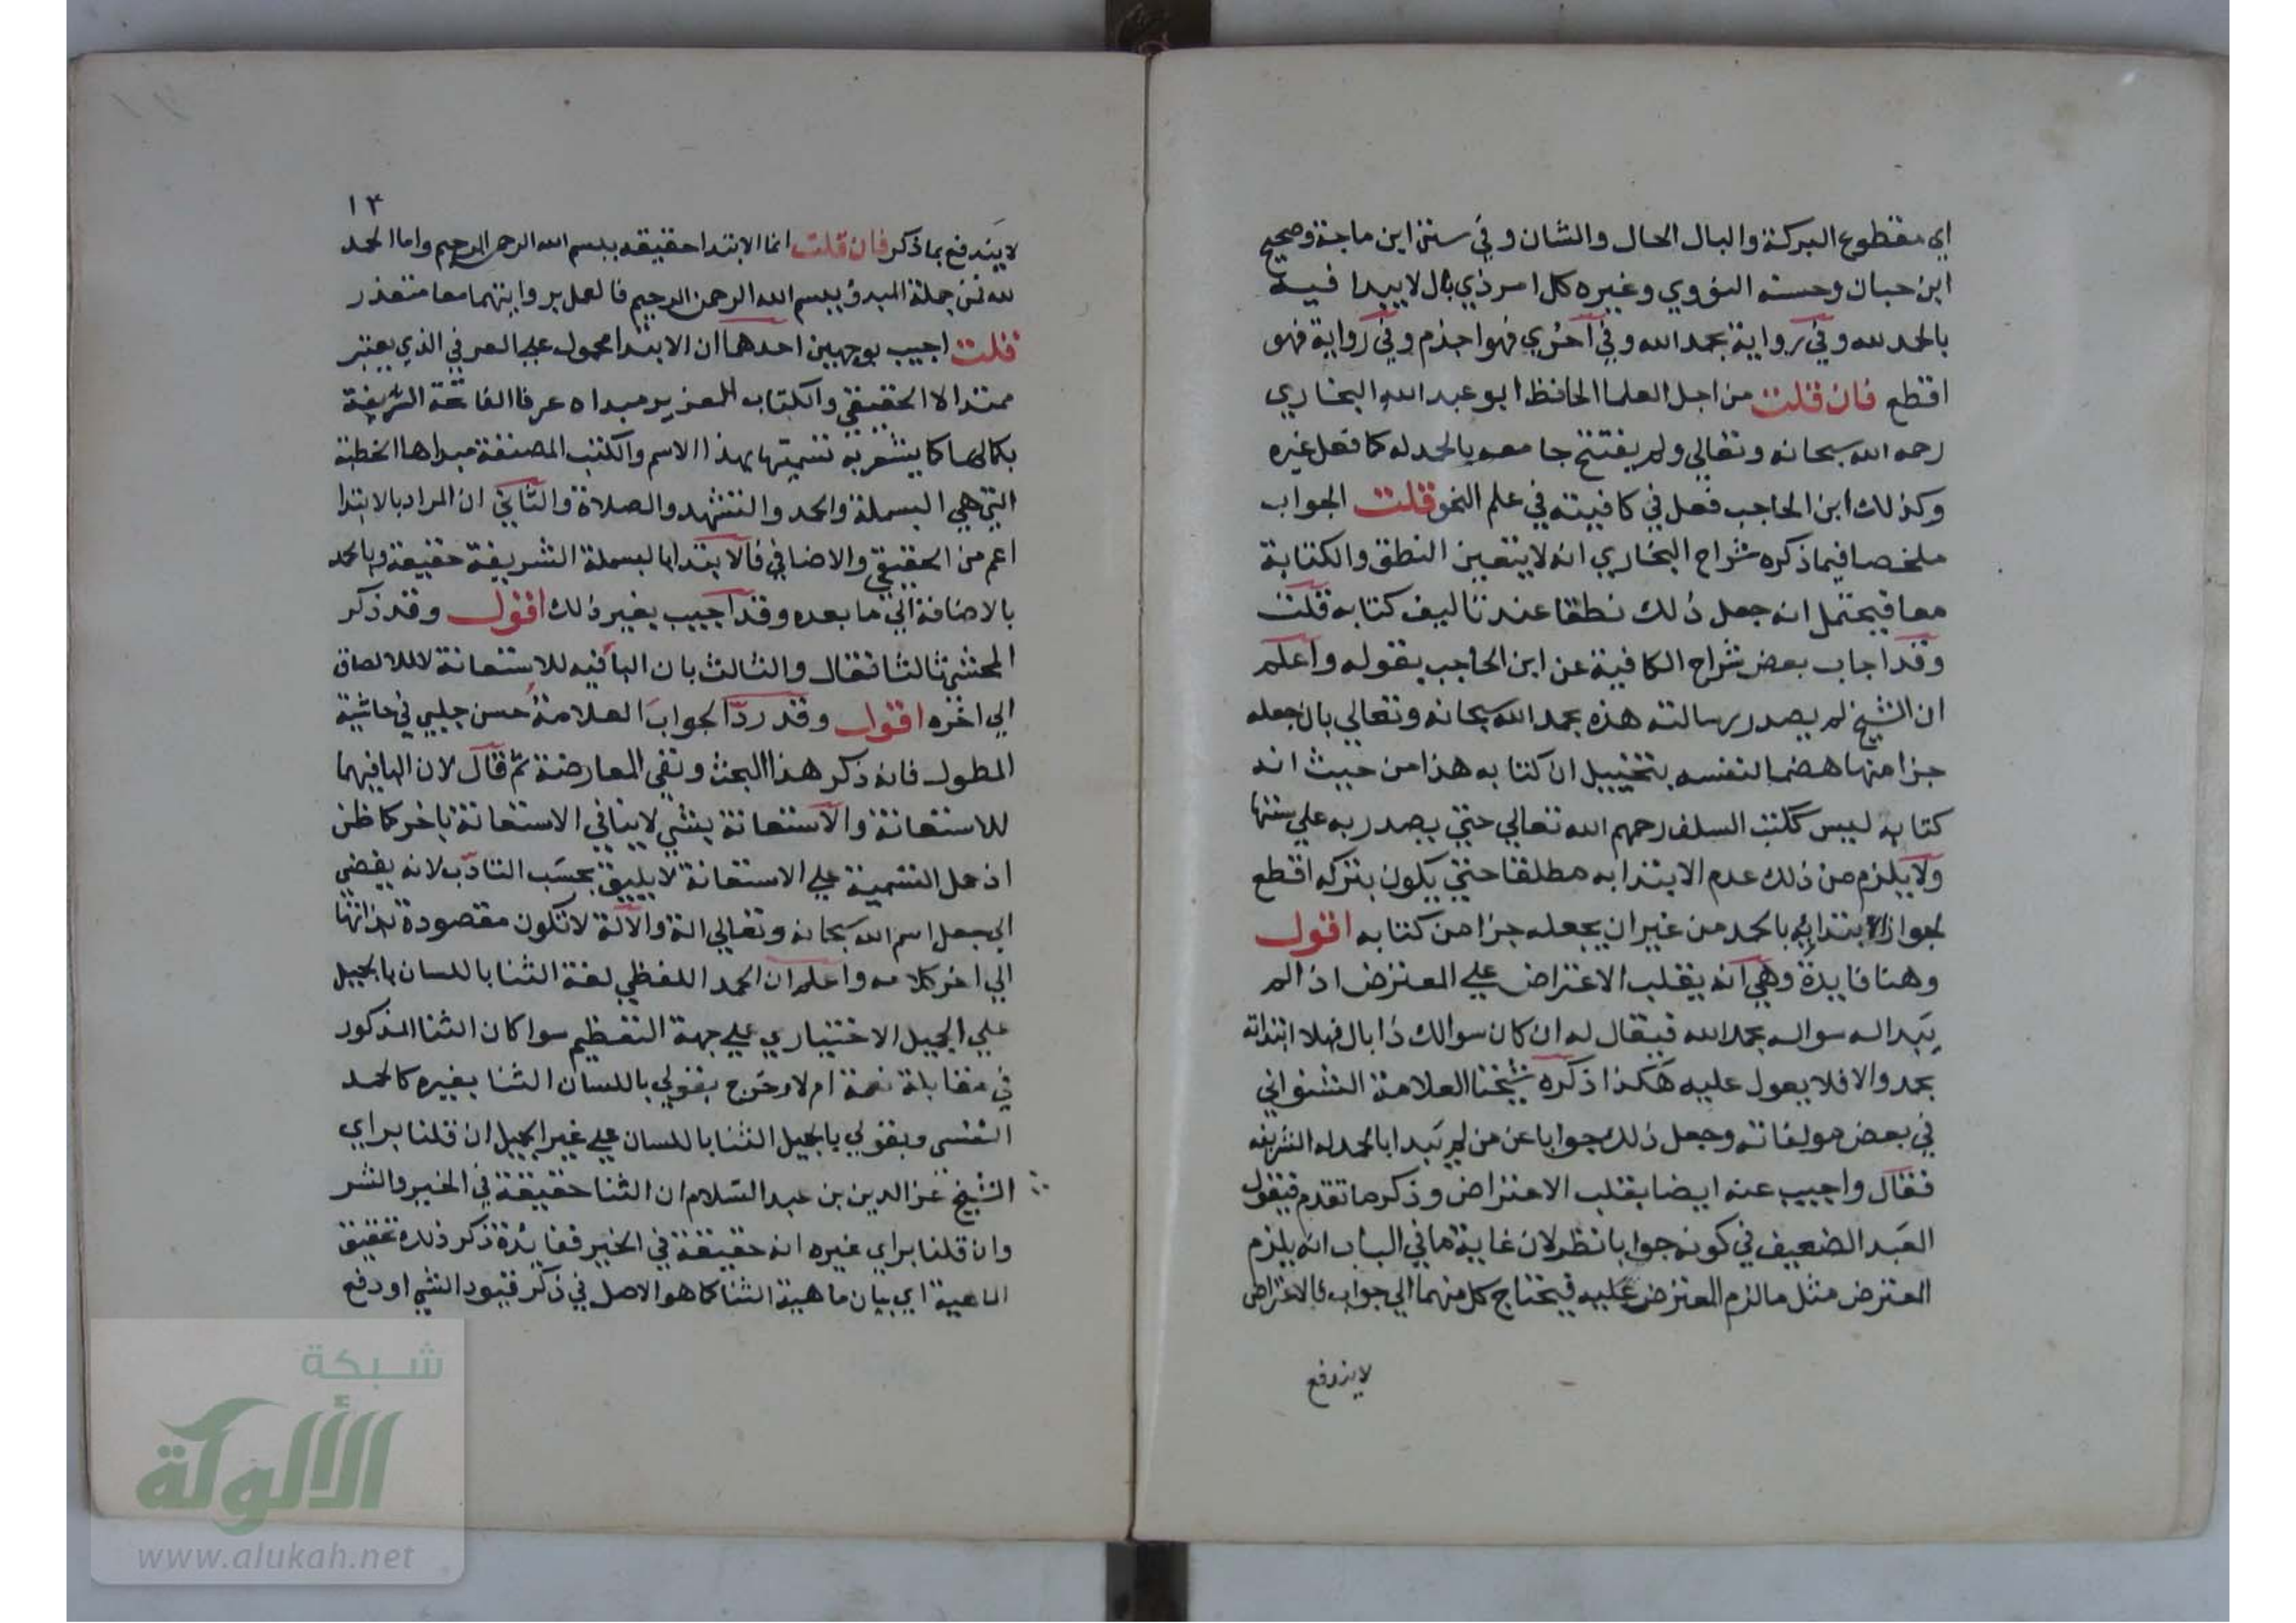 اي مقطوع البركة والبال الحال والشان وفي سنن ابن ماجة وصحيح
ابن حبان وحسنه النووي وغيره كل امر ذي بال لا يبدا فيه
بالحمد لله وفي رواية بحمد الله وفي اخري فهو اجذم وفي رواية فهو
اقطع فان قلت من اجل العلما الحافظ ابو عبد الله البخاري
رحمه الله سبحانه وتعالي ولم يفتتح جامعه بالحمد له كما فعل غيره
وكذلك ابن الحاجب فعل في كافيته في علم النحو قلت الجواب
ملخصا فيما ذكره شراح البخاري انه لا يتعين النطق والكتابة
معا فيحتمل انه جعل ذلك نطقا عند تاليف كتابه قلت
وقد اجاب بعض شراح الكافية عن ابن الحاجب بقوله واعلم
ان الشيخ لم يصدر رسالته هذه بحمد الله سبحانه وتعالي بان جعله
جزا منها هضما لنفسه بتخييل ان كتابه هذا من حيث انه
كتابه ليس ككتب السلف رحمهم الله تعالي حتي يصدر به علي سننها
ولا يلزم من ذلك عدم الابتدا به مطلقا حتي يكون بتركه اقطع
لجواز الابتدا به بالحمد من غير ان يجعله جزا من كتابه اقول
وهنا فايدة وهي انه يقلب الاعتراض علي المعترض اذ لم
يبدا له سواله بحمد الله فيقال له ان كان سوالك ذا بال فهلا ابتداته
بحمد والا فلا يعول عليه هكذا ذكره شيخنا العلامة الشنواني
في بعض مولفاته وجعل ذلك جوابا عن من لم يبدا بالحمد له الشريفه
فقال واجيب عنه ايضا بقلب الاعتراض وذكر ما تقدم فيقول
العبد الضعيف في كونه جوابا نظر لان غاية ما في الباب انه يلزم
المعترض مثل ما لزم المعترض عليه فيحتاج كل منهما الي جواب فالاعتراض
لا يندفع
١٣
لا يندفع بما ذكر فان قلت انما الابتدا حقيقه ببسم الله الرحمن الرحيم واما الحمد
لله فمن جملة المبدو ببسم الله الرحمن الرحيم فالعمل بروايتهما معا متعذر
قلت اجيب بوجهين احدهما ان الابتدا محمول علي العرفي الذي يعتبر
ممتدا لا الحقيقي والكتاب العزيز مبداه عرفا الفاتحة الشريفة
بكمالها كما يشعر به تسميتها بهذا الاسم والكتب المصنفة مبداها الخطبة
التي هي البسملة والحمد والتشهد والصلاة والثاني ان المراد بالابتدا
اعم من الحقيقي والاضافي فالابتدا بالبسملة الشريفة حقيقة وبالحمد
بالاضافة الي ما بعده وقد اجيب بغير ذلك اقول وقد ذكر
المحشي ثالثا فقال والثالث بان البا فيه للاستعانة لا للالصاق
الي اخره اقول وقد رد الجواب العلامة حسن جلبي في حاشية
المطول فانه ذكر هذا البحث ونفي المعارضة ثم قال لان البا فيهما
للاستعانة والاستعانة بشي لا ينافي الاستعانة باخر كما ظن
اذ حمل التسمية علي الاستعانة لا يليق بحسب التادب لانه يفضي
الي جعل اسم الله سبحانه وتعالي الة والالة لا تكون مقصودة بذاتها
الي اخر كلامه واعلم ان الحمد اللفظي لغة الثنا باللسان بالجميل
علي الجميل الاختياري علي جهة التعظيم سوا كان الثنا المذكور
في مقابلة نعمة ام لا وخرج بقولي باللسان الثنا بغيره كالحمد
النفسي وبقولي بالجميل الثنا باللسان علي غير الجميل ان قلنا براي
الشيخ عز الدين بن عبد السلام ان الثنا حقيقة في الخير والشر
وان قلنا براي غيره انه حقيقة في الخير ففايدة ذكر ذلك تحقيق
الماهية اي بيان ماهية الثنا كما هو الاصل في ذكر قيود الشي او دفع
شبكة
الألوكة
www.alukah.net